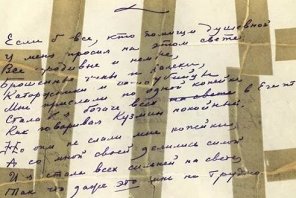 Если б все, кто помощи душевной
У меня просил на этом свете
Все юродивые и немые,
Брошенные жены и калеки,
Каторжники и самоубийцы
Мне прислали по одной копейке
Стала б я богаче всех в Египте
Как говаривал Кузмин покойный.
Но они не слали мне копейки,
А со мной своей делились силой
И я стала всех сильней на свете
Так что даже это мне не трудно